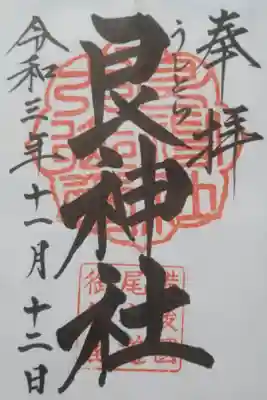 奉拝
うしとら
艮神社
令和三年十一月十二日